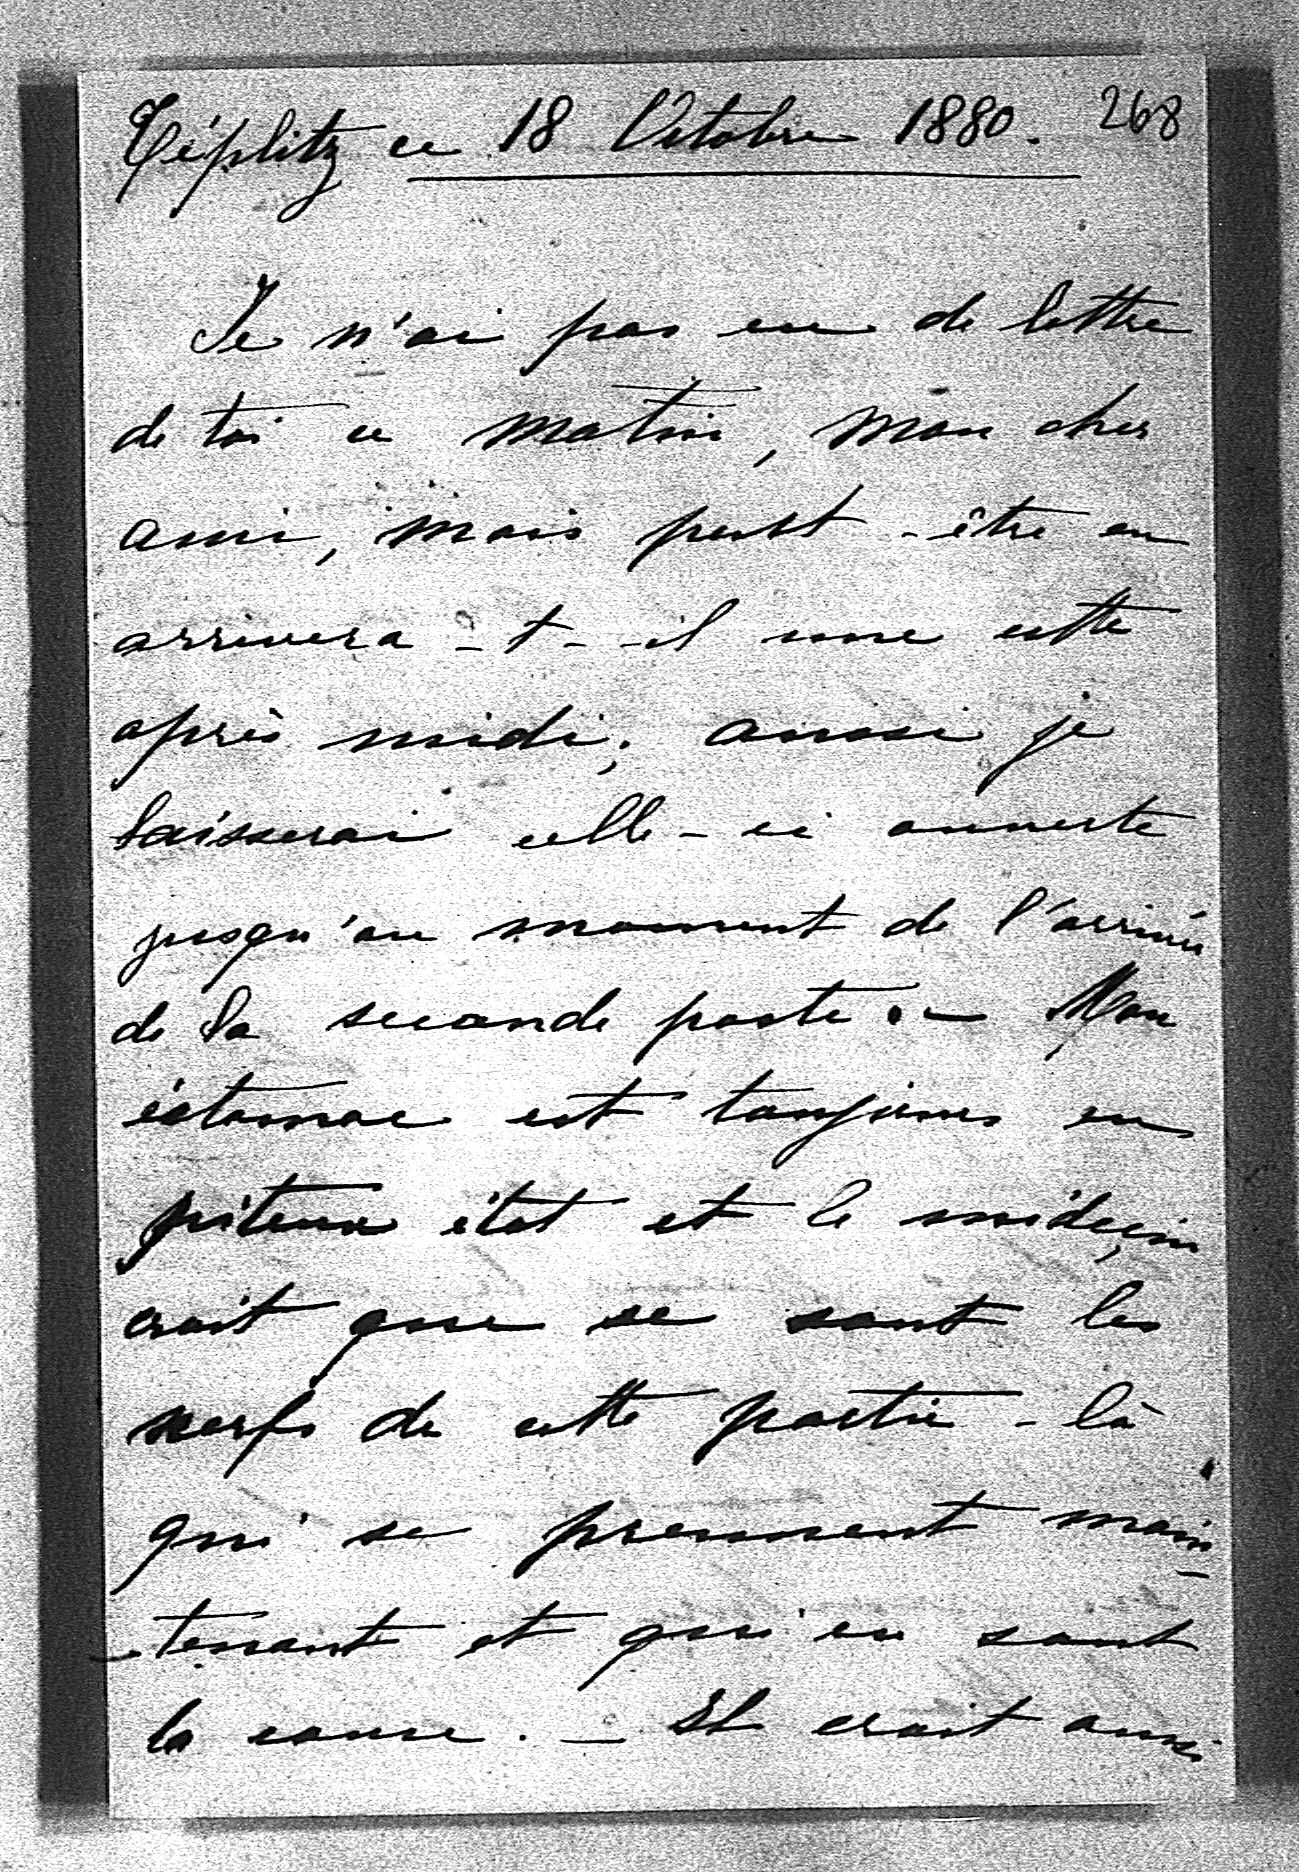 Téplitz ce 18 Octobre 1880. 268
Je n'ai pas eu de lettre
de toi ce matin, mon cher
ami, mais peut-être en
arrivera-t-il une cette
après midi; aussi je
laisserai celle-ci ouverte
jusqu'au moment de l'arrivée
de la seconde poste. — Mon
éstomac est toujours en
piteux état et le médeçin
croit que se sont les
nerfs de cette partie-là
qui se prennent main-
-tenant et qui en sont
la cause. — Il croit aussi